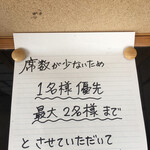 席数が少ないため
1名様優先
最大2名様まで
とさせていただいて